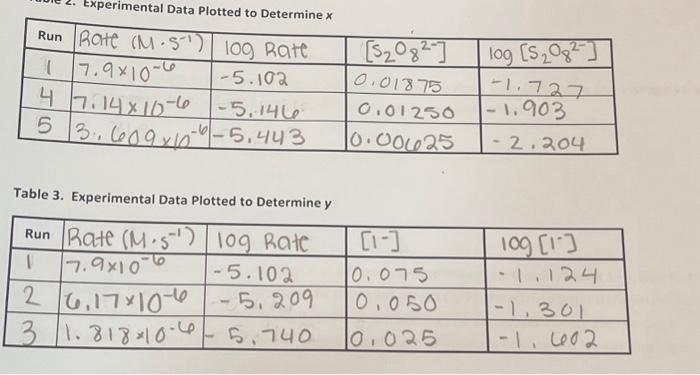 2. Experimental Data Plotted to Determine x
Run Rate (M·s⁻¹) log Rate [S₂O₈²⁻] log [S₂O₈²⁻]
1 7.9×10⁻⁶ -5.102 0.01875 -1.727
4 7.14×10⁻⁶ -5.146 0.01250 -1.903
5 3.609×10⁻⁶ -5.443 0.00625 -2.204
Table 3. Experimental Data Plotted to Determine y
Run Rate (M·s⁻¹) log Rate [I⁻] log [I⁻]
1 7.9×10⁻⁶ -5.102 0.075 -1.124
2 6.17×10⁻⁶ -5.209 0.050 -1.301
3 1.818×10⁻⁶ -5.740 0.025 -1.602